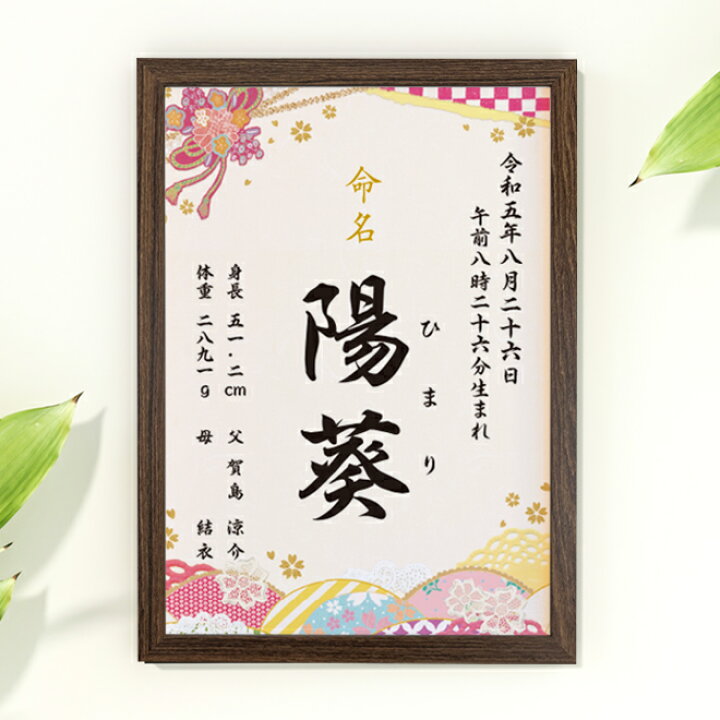 令和五年八月二十六日
午前八時二十六分生まれ
命名
陽葵
ひまり
身長 五一.二cm 父 賀島 涼介
体重 二八九一g 母 結衣